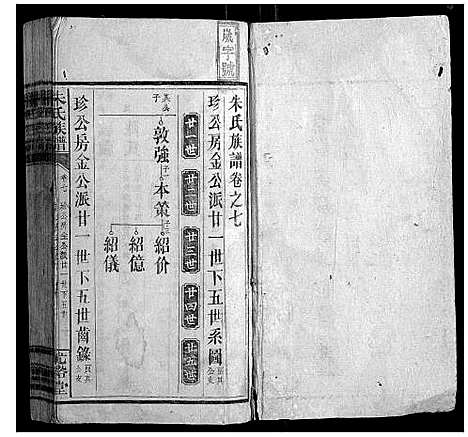 歲字號
朱氏族譜卷之七
珍公房金公派廿一世下五世系圖
廿一世
廿二世
廿三世
廿四世
廿五世
敦強
本策
紹价
紹億
紹儀
珍公房金公派廿一世下五世齒錄
朱氏族譜
卷七
珍公房金公派廿一世下五世